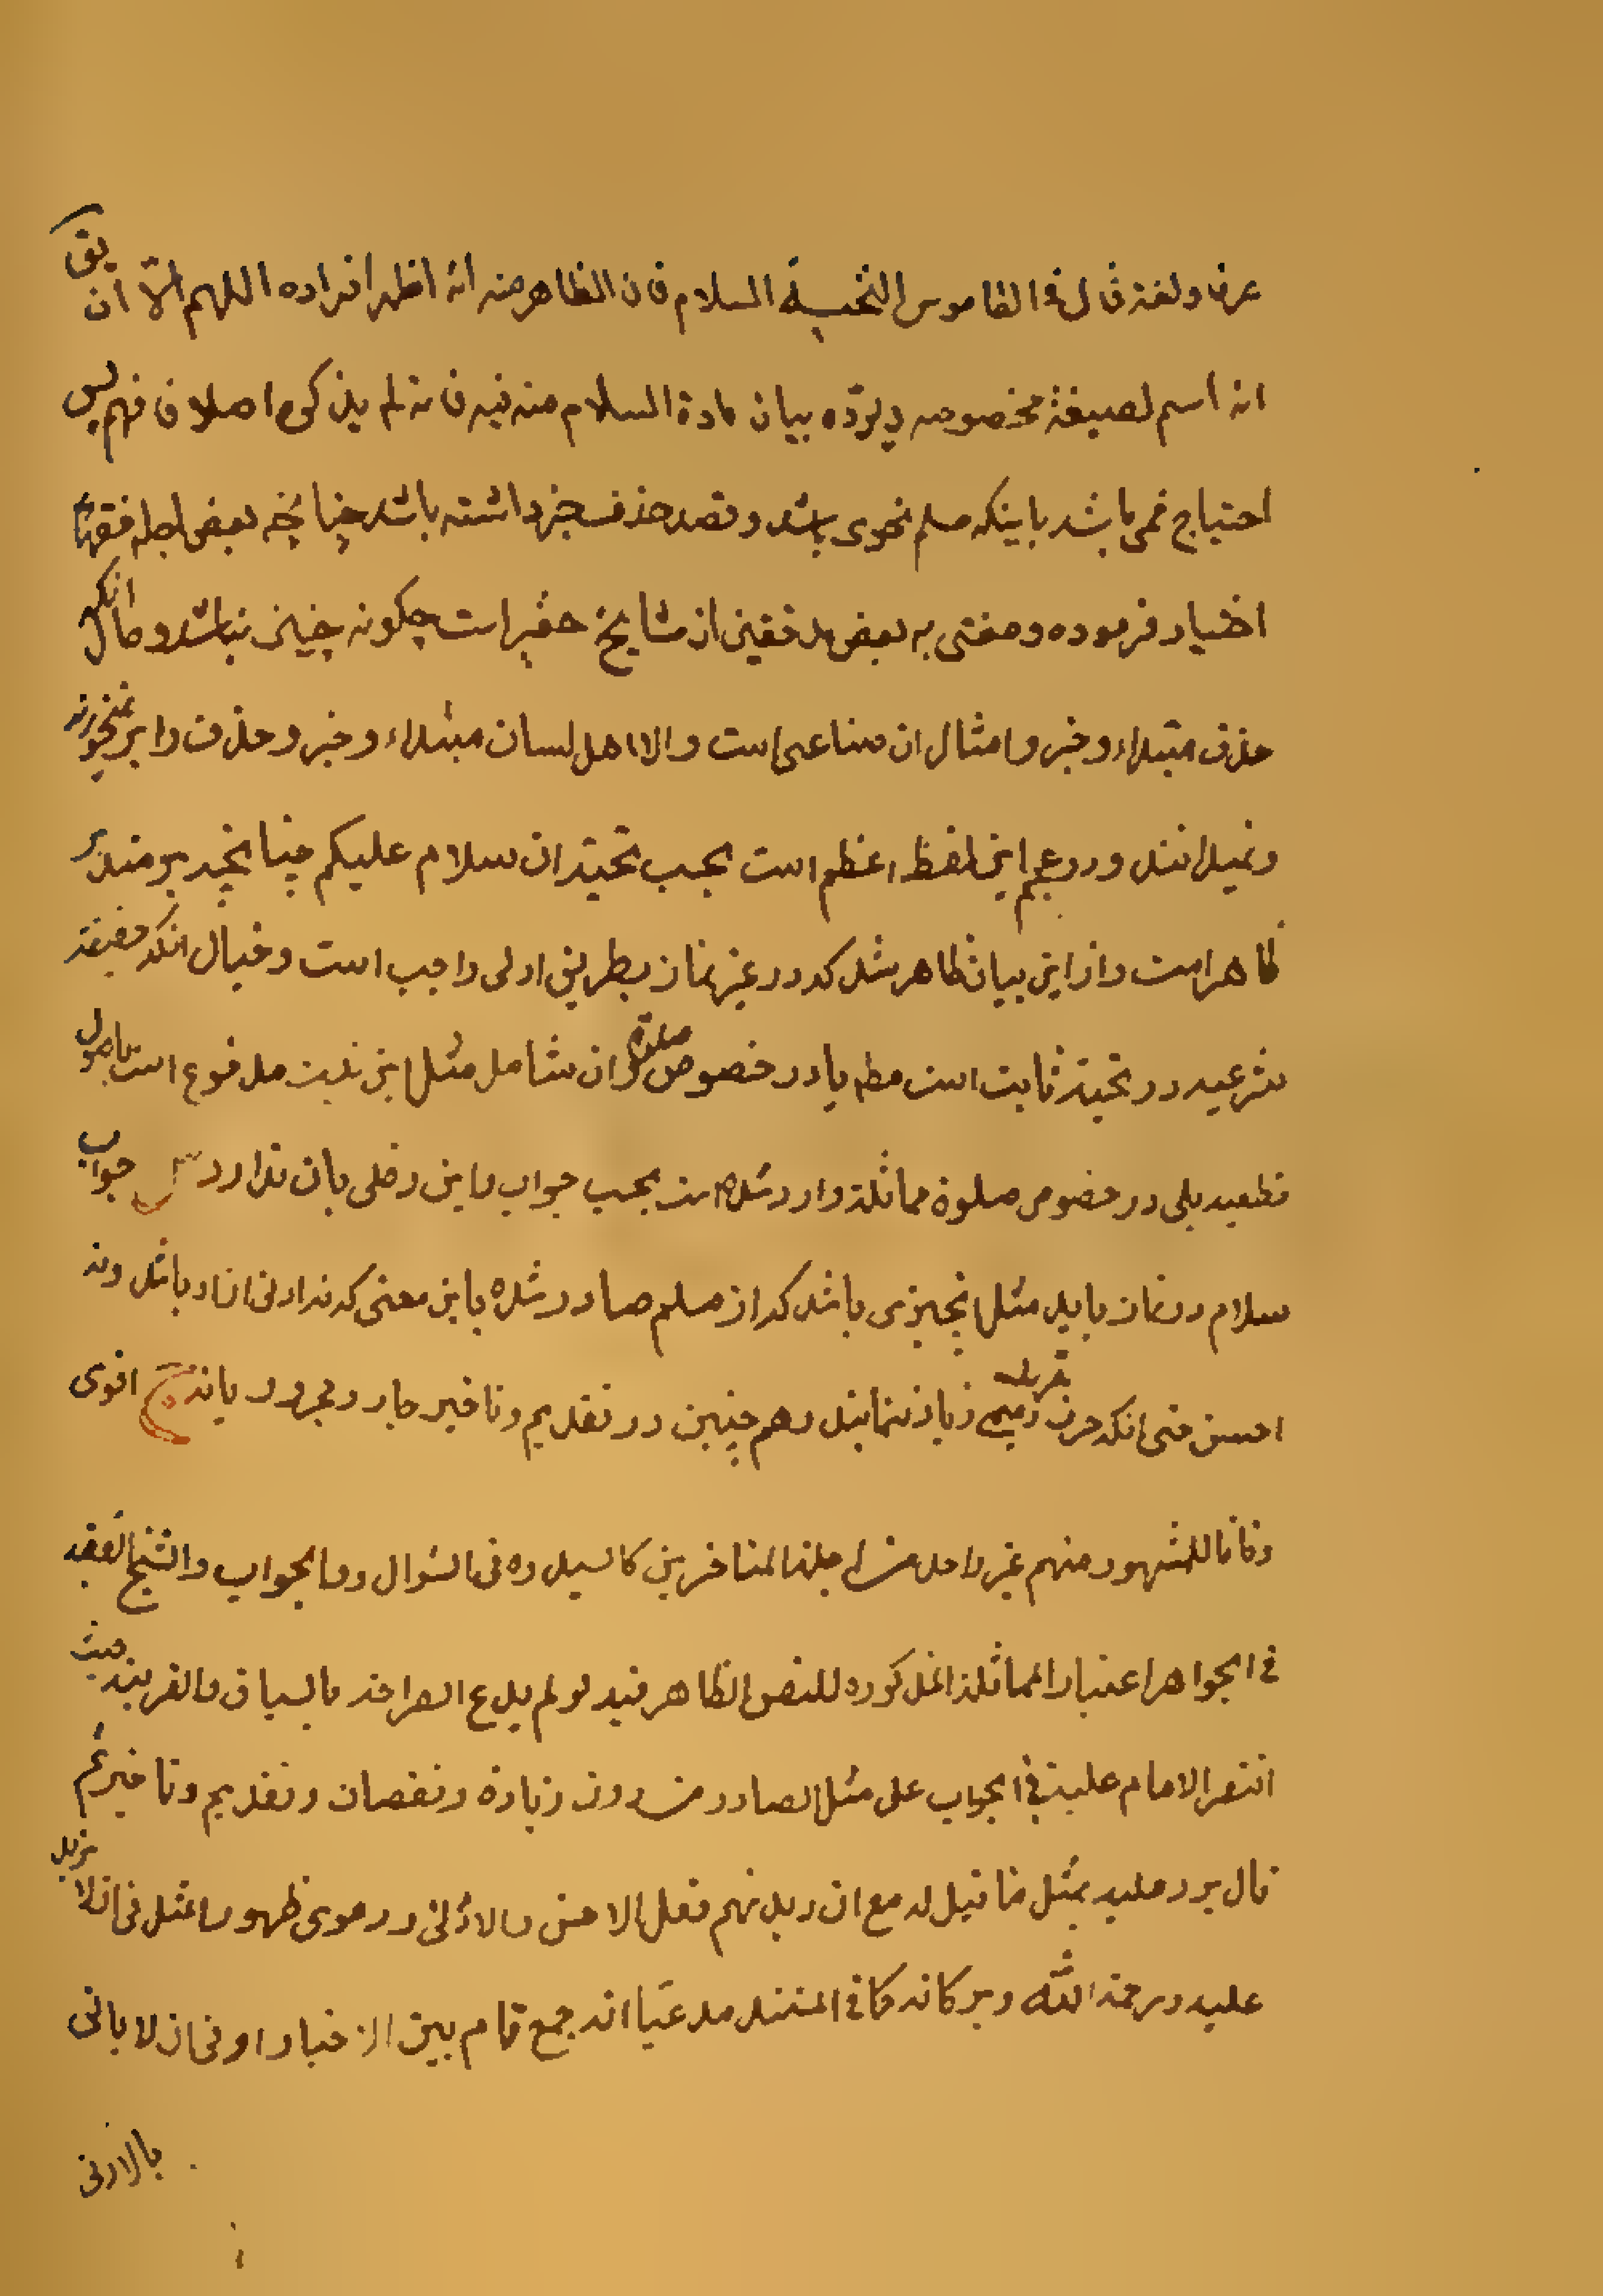 عرفا ولغة قال فى القاموس التحية السلام فان الظاهر منه انه اظهر افراده اللهم الّا ان يق
انه اسم لصيغة مخصوصه ويردّه بيان مادة السلام منه فيه فانه لم يذكره اصلا فافهم پس
احتياج نمى باشد باينكه مسلم نحوى باشد وقصد حذف خبر داشته باشد چنانچه بعض اجله فقهاء
اختيار فرموده ومفتى به بعض مدققين از مشايخ حقير است چكونه چنين نباشد وحال انكه
حذف مبتداء وخبر وامثال ان صناعى است والا اهل لسان مبتداء وخبر وحذف را بر نمى خورند
ونميدانند ودر عجم اين لفظ اعظم است بحسب تحية ان سلام عليكم چنانچه بر متدبر
ظاهر است واز اين بيان ظاهر شد كه در غير نماز بطريق اولى واجب است وخيال انكه حقيقة
شرعيه در تحية ثابت است مطم يا در خصوص صلوة ان شامل مثل اين نيست مدفوع است باصول
قطعيه بلى در خصوص صلوة مماثلة وارد شده است بحسب جواب واين دخلى بان ندارد س جواب
سلام در نماز بايد مثل انچيزى باشد كه از مسلم صادر شده باين معنى كه نه ادنى از او باشد ونه
احسن حتى انكه حرف تعريف وميمى زياد ننمايند وهم چنين در تقديم وتاخير جار ومجرور يا نه ج اقوى
وفاقا للمشهور منهم غير واحد من اجلة المتاخرين كالسيد ره فى السؤال والجواب والشيخ الفقيه
فى الجواهر اعتبار المماثلة المذكوره للنص الظاهر فيه لو لم يدع الصراحة بالسياق والقرينة حيث
اقتصر الامام عليه فى الجواب على مثل الصادر من دون زيادة ونقصان وتقديم وتاخير ثم
قال يرد عليه بمثل ما قيل له مع ان ديدنهم فعل الاحسن والاولى ودعوى ظهور المثل فى ان لا يزيد
عليه ورحمة الله وبركاته كما فى المستند مدعيّا انه جمع تام بين الاخبار اوفى ان لا ياتى
بالادنى